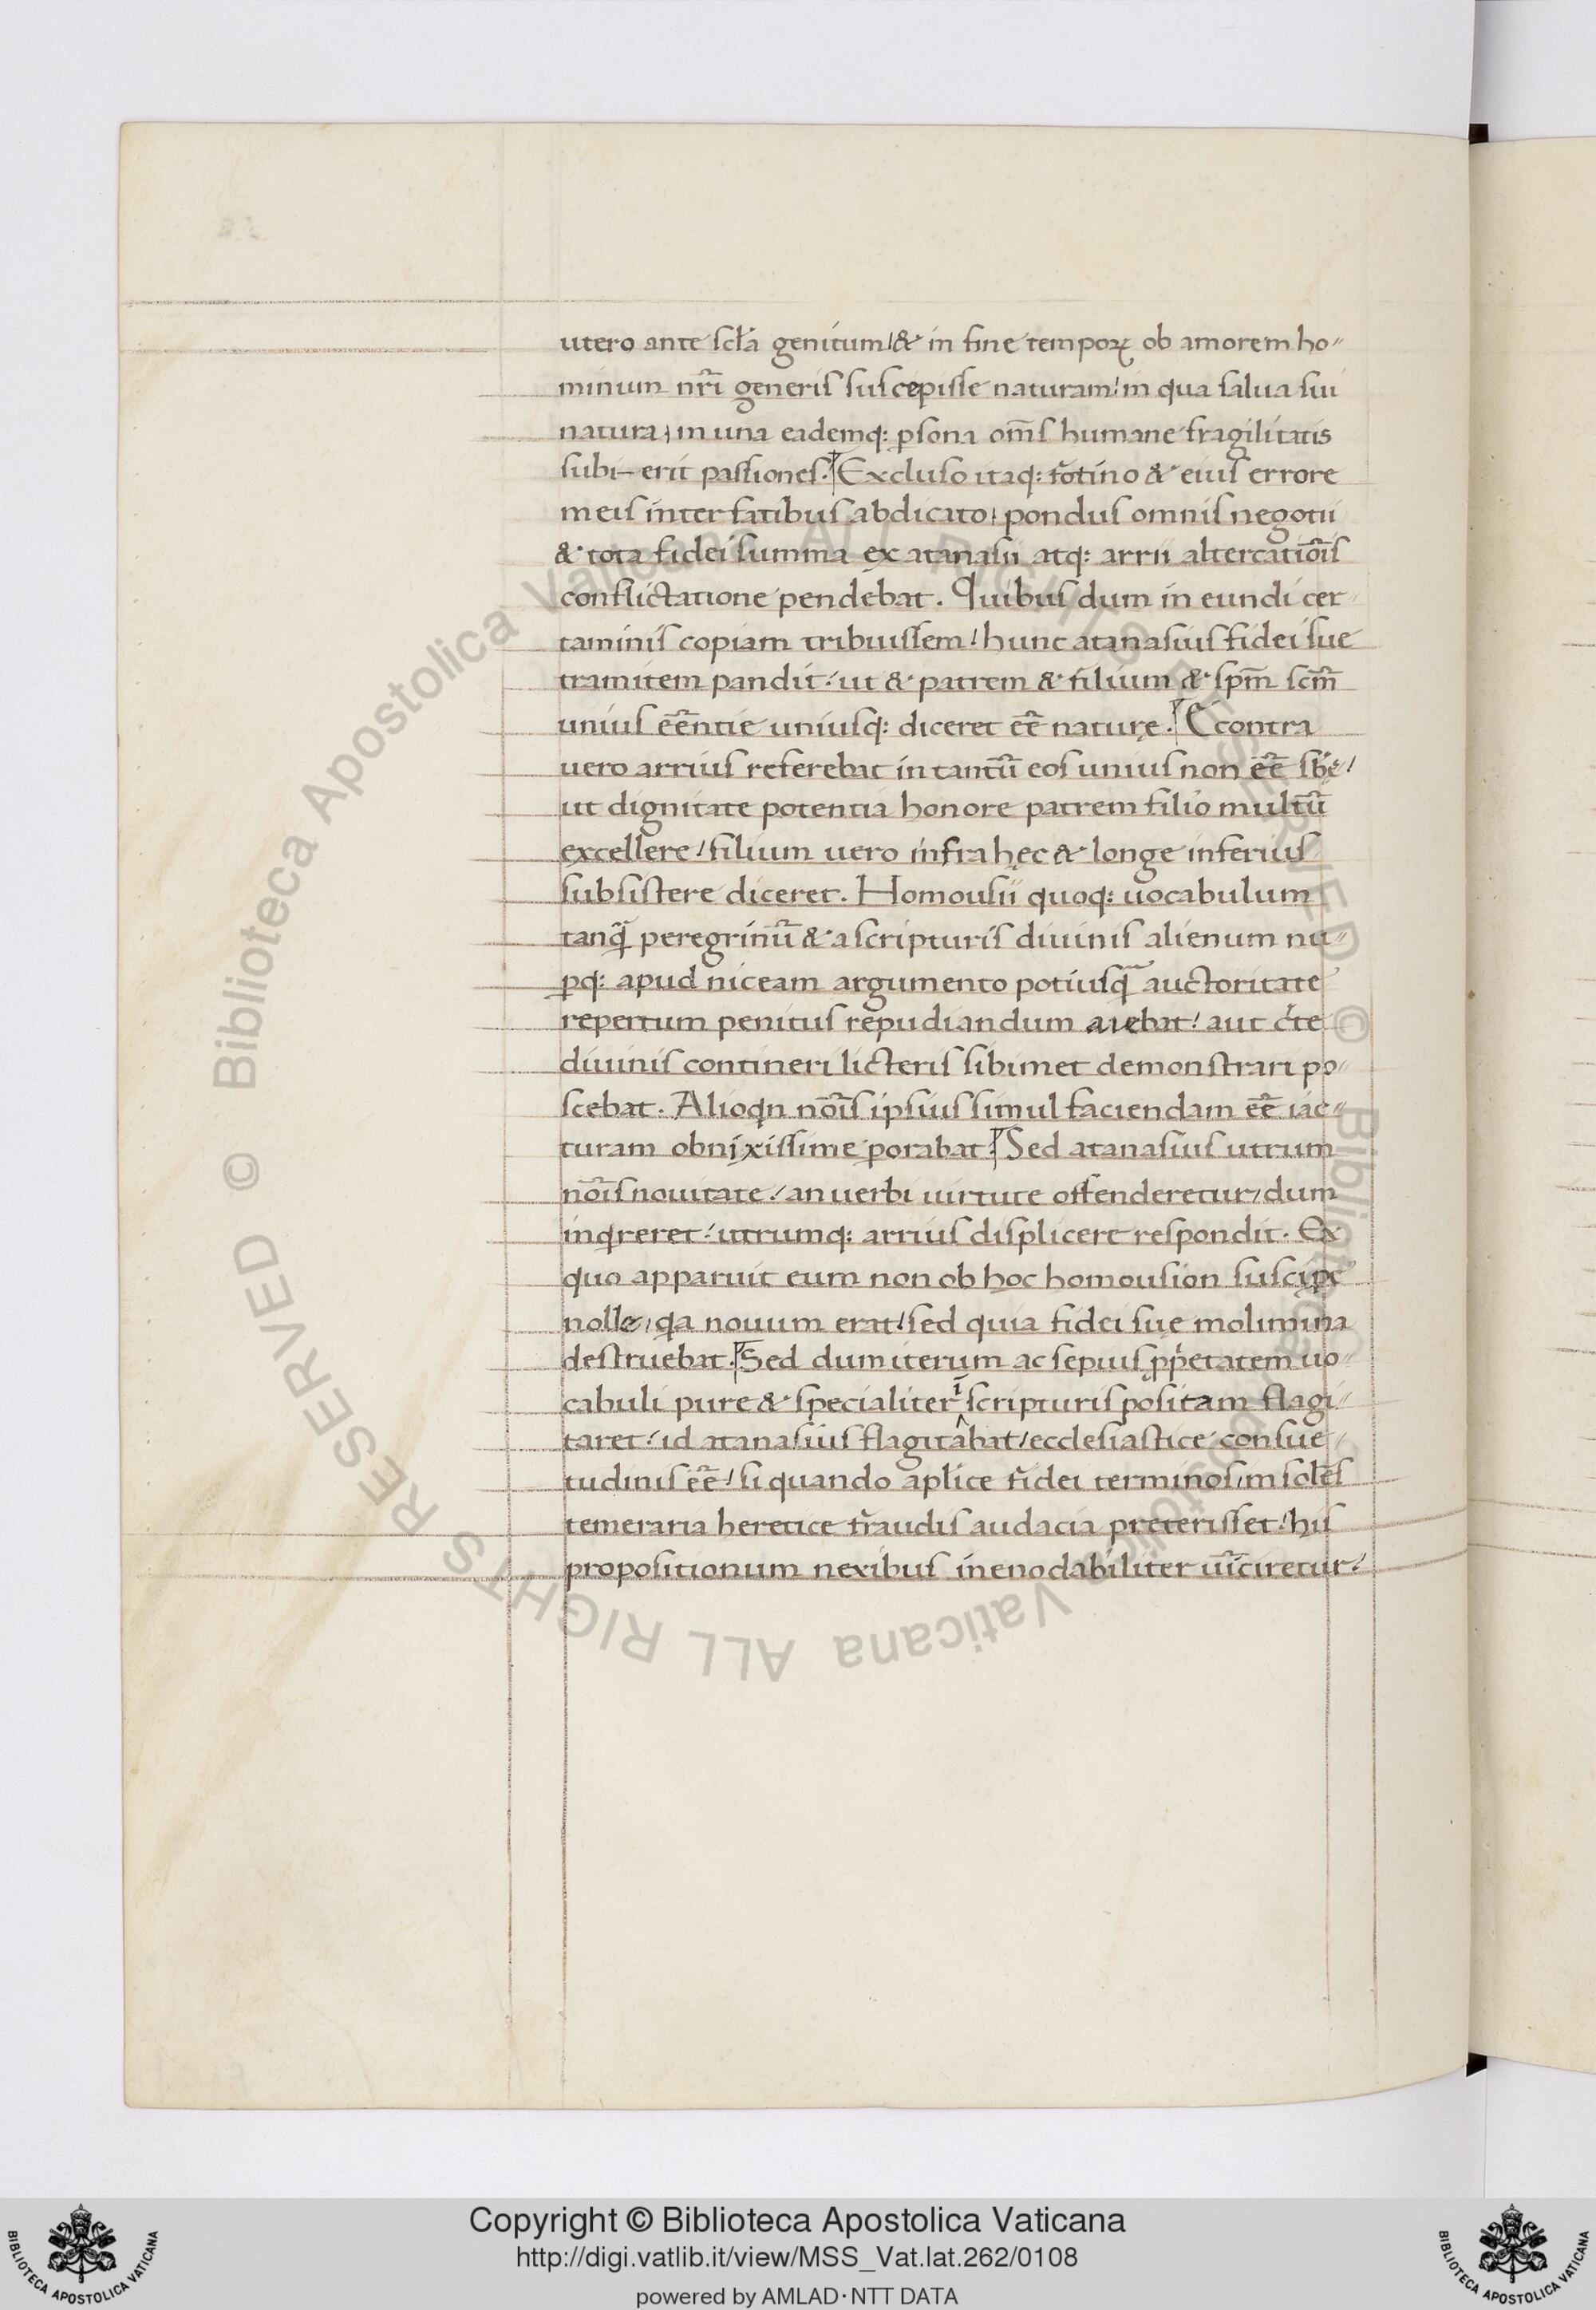 utero ante scła genitum / & in fine tempoꝝ ob amorem ho〃
minum nr̃i generis suscepisse naturam / in qua salua sui
natura / in una eademq: ꝑsona om̃s humane fragilitatis
subi–erit passiones. Excluso itaq: fotino & eius errore
meis interfatibus abdicato / pondus omnis negotii
& tota fidei summa ex atanasii atq: arrii altercatio͞is
conflictatione pendebat. Quibus dum in eundi cer〃
taminis copiam tribuissem / hunc atanasius fidei sue
tramitem pandit / ut & patrem & filium & sp͞m sc͞m
unius ee͞ntie uniusq: diceret ee͞ nature. E contra
uero arrius referebat in tantū eos unius non ee͞ sbe /
ut dignitate potentia honore patrem filio multū
excellere / filium uero infra hęc & longe inferius
subsistere diceret. Homousii quoq: uocabulum
tanq̃ peregrinū & a scripturis diuinis alienum nu〃
ꝑq: apud niceam argumento potiusq̃ auctoritate
repertum penitus repudiandum aiebat / aut c̓te
diuinis contineri licteris sibimet demonstrari po〃
scebat. Alioqn no͞is ipsius simul faciendam ee͞ iac〃
turam obnixissime porabat. Sed atanasius utrum
no͞is nouitate / an uerbi uirtute offenderetur / dum
inqreret / utrumq: arrius displicere respondit. Ex
quo apparuit eum non ob hoc homousion suscipe
nolle / qa nouum erat / sed quia fidei sue molimina
destruebat. Sed dum iterum ac sepius ꝓp̓etatem uo〃
cabuli pure & specialiter ī scripturis positam flagi〃
taret / id atanasius flagitabat / ecclesiastice consue〃
tudinis ee͞ / si quando aplice fidei terminos / insole͞s
temeraria heretice fraudis audacia preterisset / his
propositionum nexibus inenodabiliter uīciretur /
Copyright © Biblioteca Apostolica Vaticana
http://digi.vatlib.it/view/MSS_Vat.lat.262/0108
powered by AMLAD·NTT DATA
© Biblioteca Apostolica Vaticana ALL RIGHTS RESERVED
© Biblioteca Apostolica Vaticana ALL RIGHTS RESERVED
BIBLIOTECA APOSTOLICA VATICANA
BIBLIOTECA APOSTOLICA VATICANA